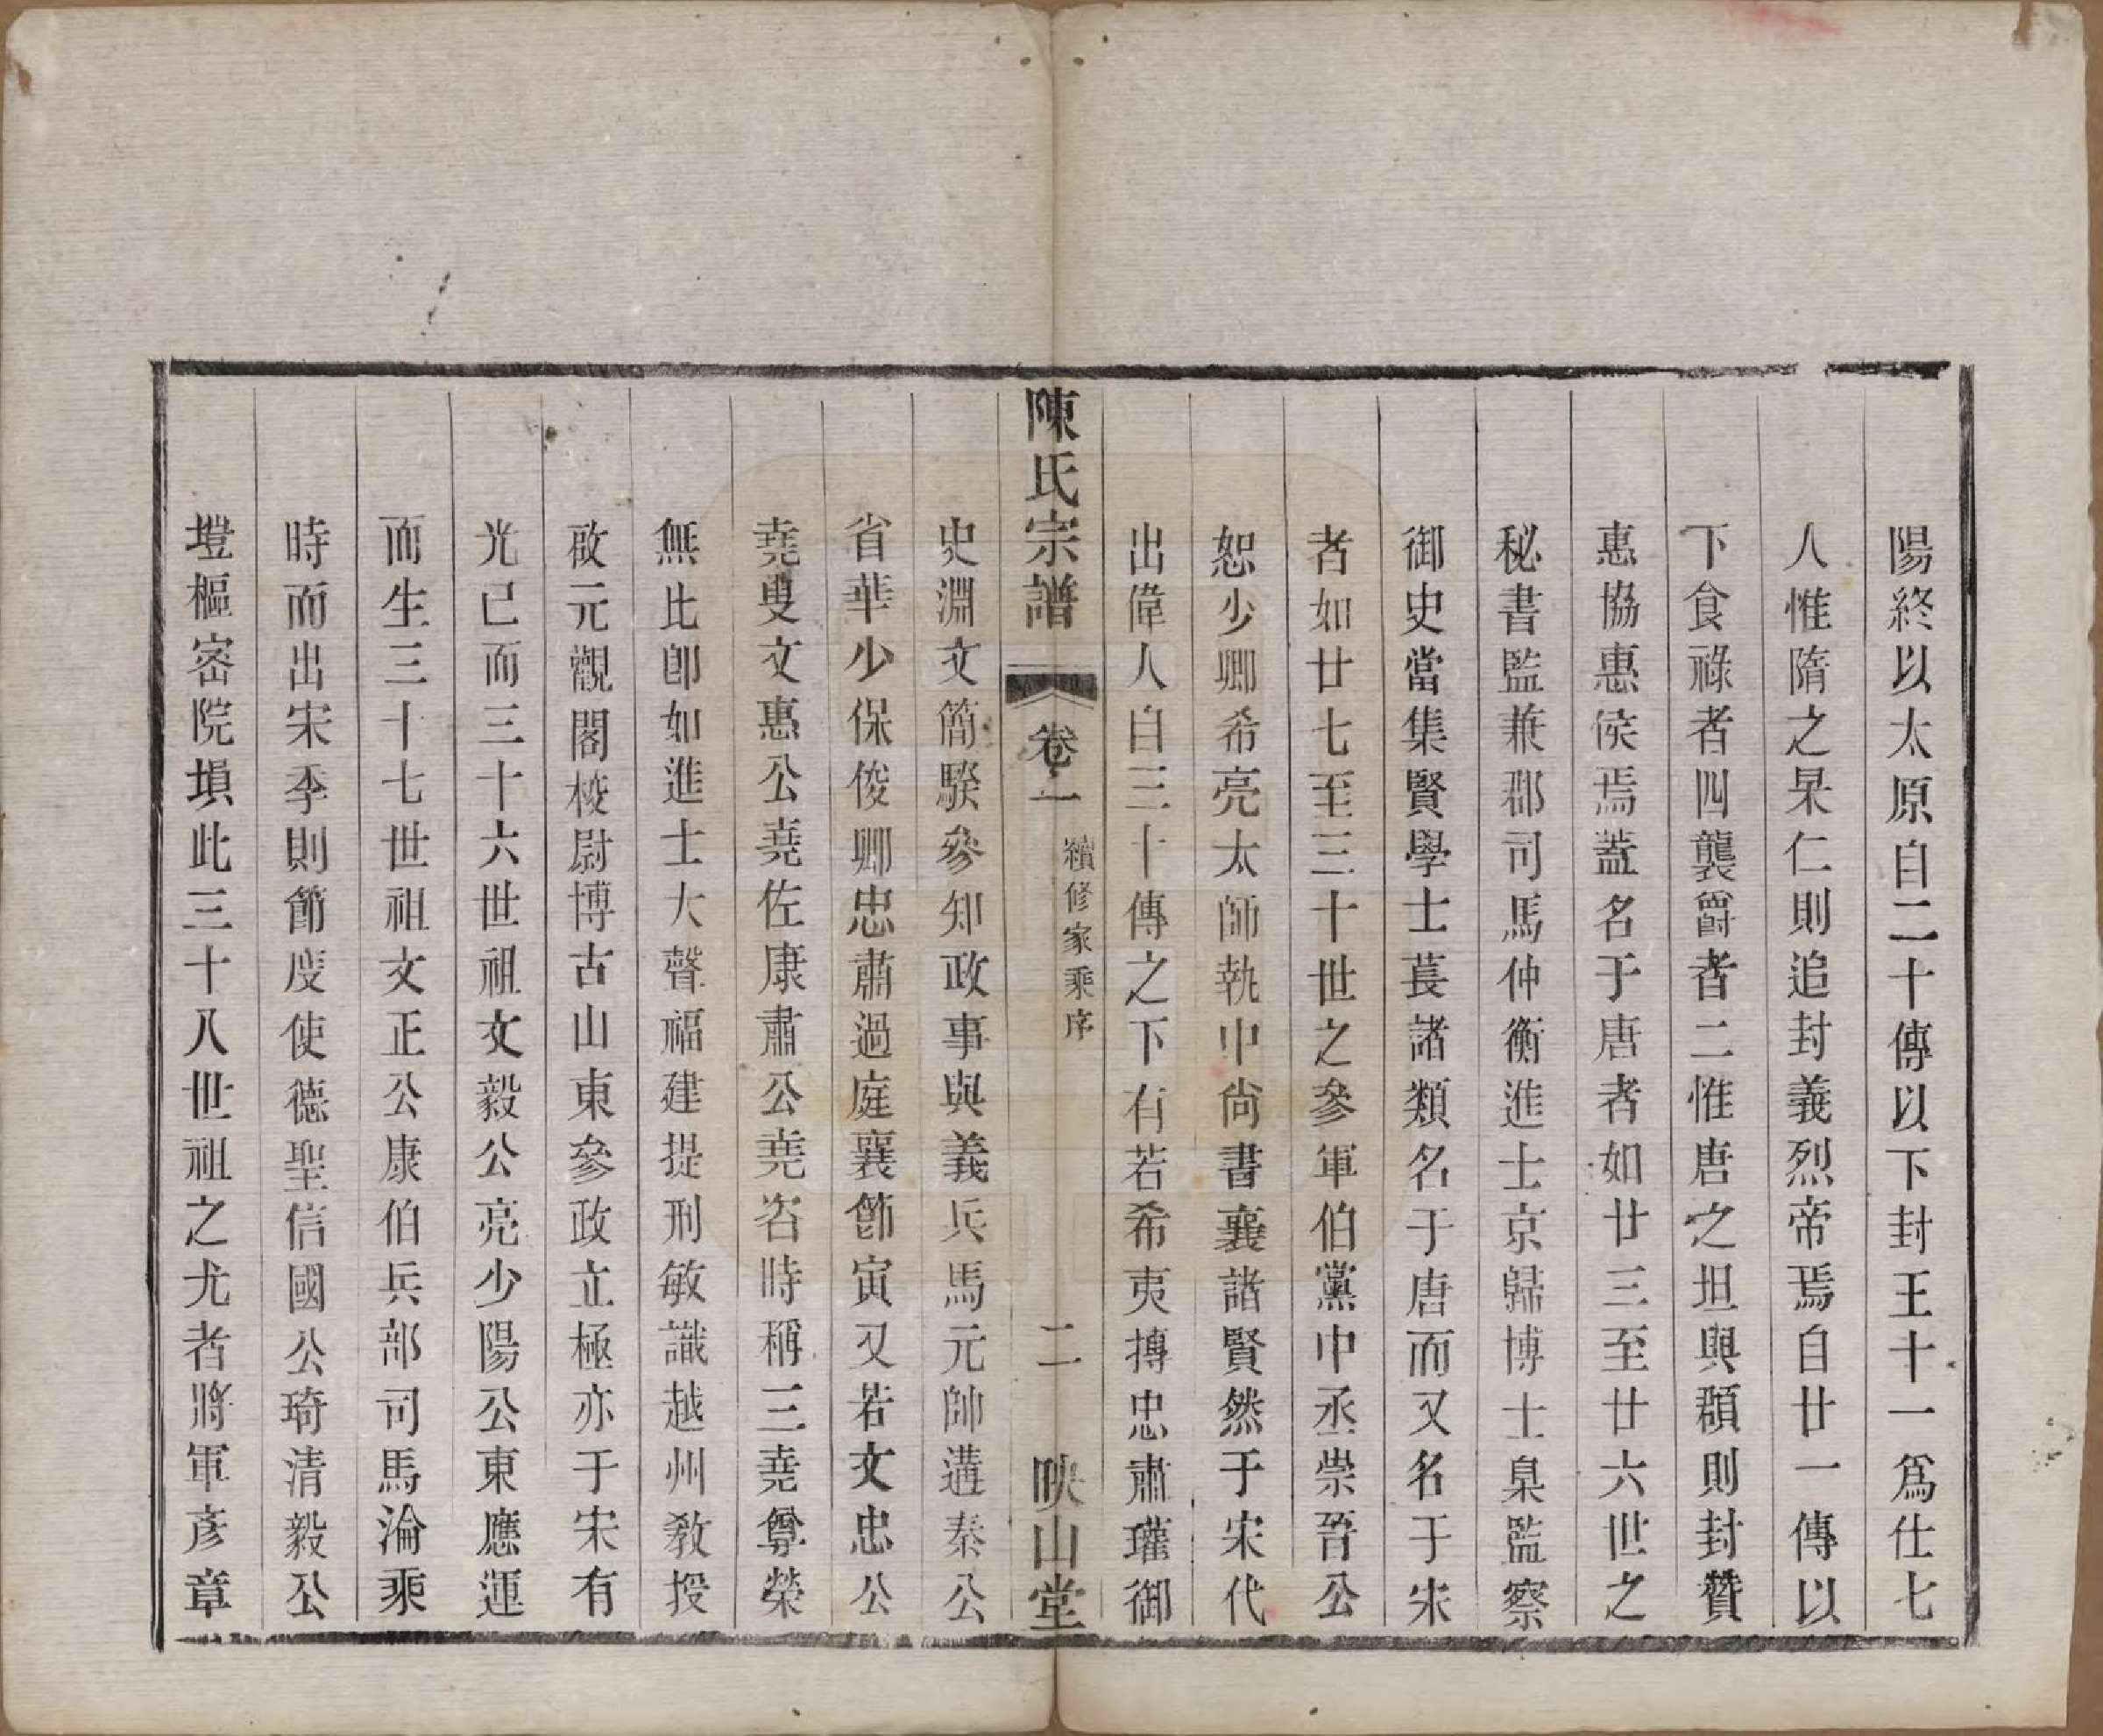 陽終以太原自二十傳以下封王十一爲仕七
人惟隋之杲仁則追封義烈帝焉自廿一傳以
下食祿者四襲爵者二惟唐之坦與頵則封贊
惠協惠侯焉蓋名于唐者如廿三至廿六世之
秘書監兼郡司馬仲衡進士京歸博士臬監察
御史當集賢學士萇諸類名于唐而又名于宋
者如廿七至三十世之參軍伯黨中丞崇吾公
恕少卿希亮太師執中尙書襄諸賢然于宋代
出偉人自三十傳之下有若希夷摶忠肅瓘御
陳氏宗譜 卷一 續修家乘序 二 映山堂
史淵文簡騤參知政事與義兵馬元帥遘秦公
省華少保俊卿忠肅過庭襄節寅又若文忠公
堯叟文惠公堯佐康肅公堯咨時稱三堯尊榮
無比卽如進士大聲福建提刑敏識越州敎授
啟元觀閣校尉博古山東參政立極亦于宋有
光已而三十六世祖文毅公亮少陽公東應運
而生三十七世祖文正公康伯兵部司馬淪乘
時而出宋季則節度使德聖信國公琦清毅公
塏樞密院塤此三十八世祖之尤者將軍彥章